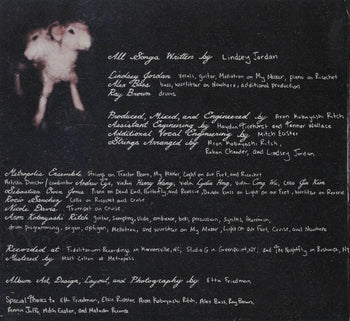 All Songs Written by Lindsey Jordan
Lindsey Jordan vocals, guitar, Mellotron on My Maker, piano on Ricochet
Alex Bass bass, wurlitzer on Nowhere, additional production
Ray Brown drums
Produced, Mixed, and Engineered by Aron Kobayashi Ritch
Assistant Engineering by Hayden Ticehurst and Tanner Wallace
Additional Vocal Engineering by Mitch Easter
Strings Arranged by Aron Kobayashi Ritch,
and Lindsey Jordan
Metropolis Ensemble Strings on Tractor Beam, My Maker, Light on Our Feet, and Ricochet
Artistic Director / conductor Andrew Cyr, violin Henry Wang, violin Lydia Hong, viola Cong Wu, cello Gen Kim
Sebastian Owen Jones Piano on Dead End, Butterfly and Reverie, Double bass on Light on Our Feet, Wurlitzer on Reverie
Rocio Sanchez Cello on Ricochet and Cruise
Nicole Davis Trumpet on Cruise
Aron Kobayashi Ritch guitar, sampling, slide, omnichord, bell, percussion, synths, harmonium,
drum programming, organ, optigan, Mellotron, and wurlitzer on My Maker, Light on Our Feet, Cruise, and Nowhere
Recorded at Fidelitorium Recordings in Kernersville, NC, Studio G in Greenpoint, NY, and The Nightfly in Bushwick, NY
Mastered by Matt Colton at Metropolis
Album Art, Design, Layout, and Photography by Etta Friedman
Special Thanks to Etta Friedman, Elise Richter, Aron Kobayashi Ritch, Alex Bass, Ray Brown,
Annie Jaffe, Mitch Easter, and Matador Records